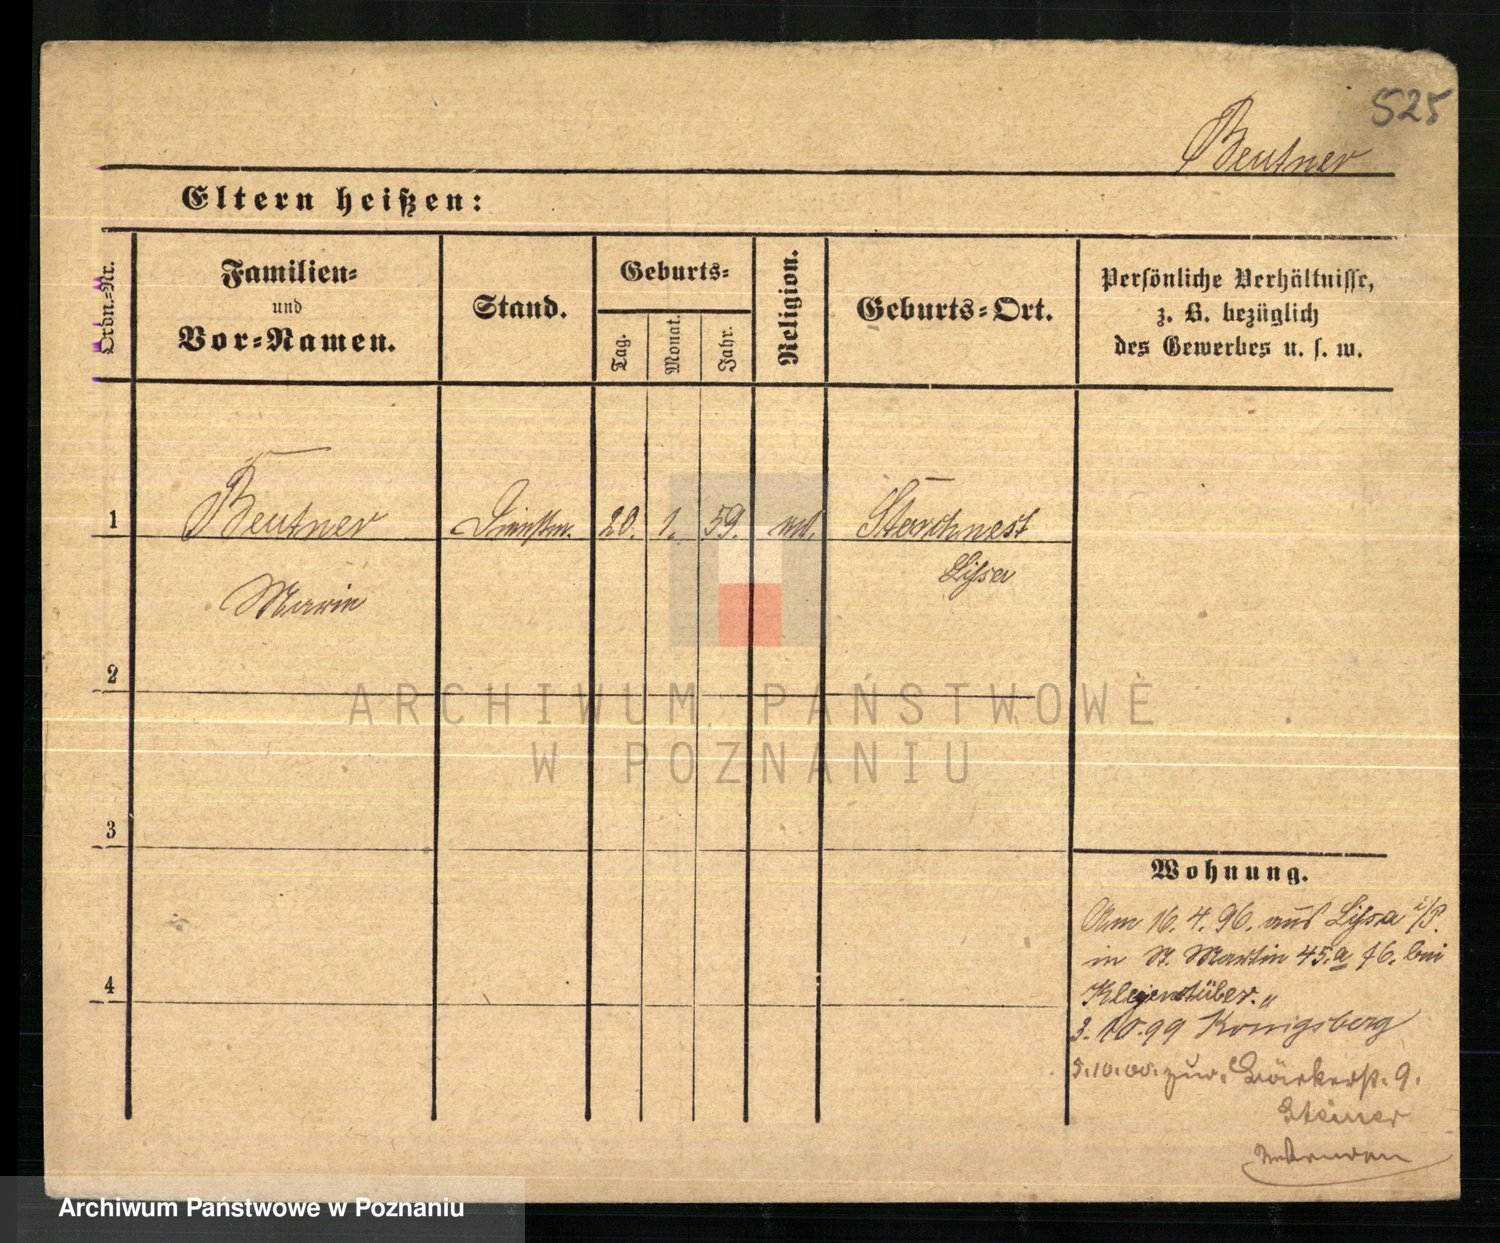 525
Beutner
Eltern heißen:
Ordn.-Nr.
Familien-
und
Vor-Namen.
Stand.
Geburts-
Tag.
Monat.
Jahr.
Religion.
Geburts-Ort.
Persönliche Verhältnisse,
z. B. bezüglich
des Gewerbes u. s. w.
1 Beutner 20. 1. 59. Storchnest
Lissa
Marie
2
ARCHIWUM PAŃSTWOWE
W POZNANIU
3
Wohnung.
Am 16. 4. 96. aus Lissa i/P.
in St. Martin 45.a bei
4
3. 10. 99 Königsberg
5. 10. 00. zur. Bäckerst. 9.
Steiner
Archiwum Państwowe w Poznaniu